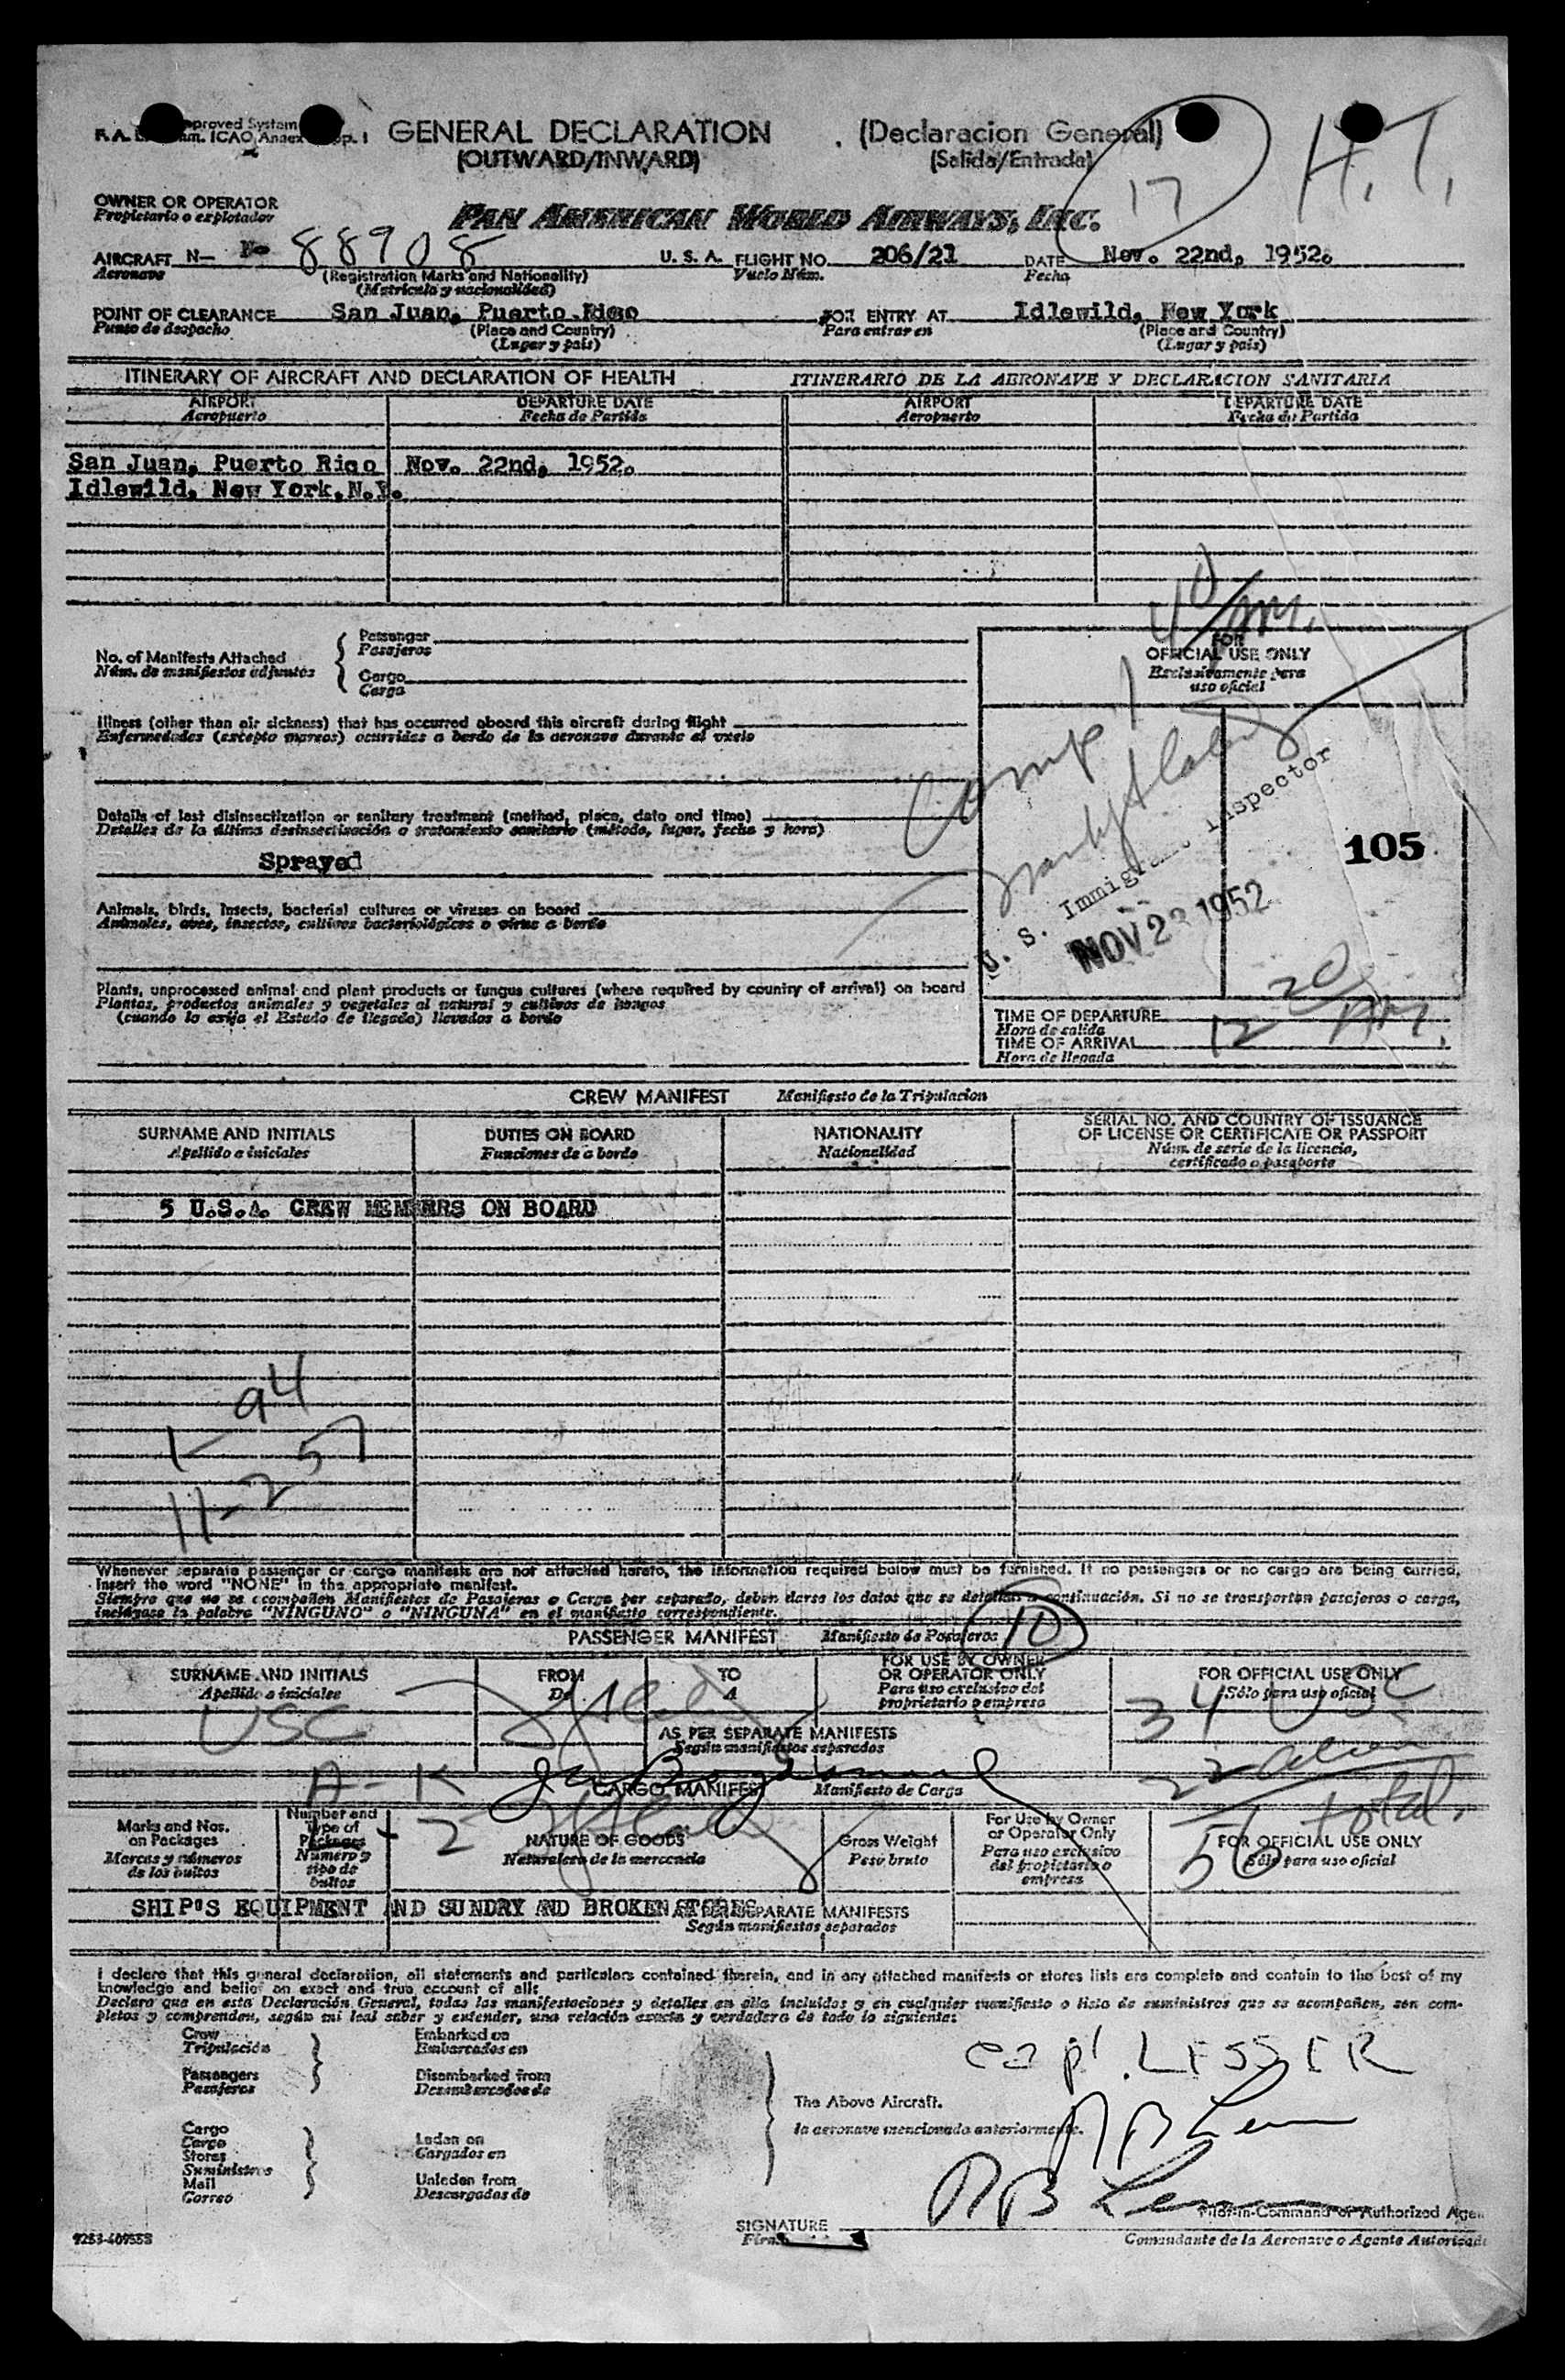 GENERAL DECLARATION (Declaracion General)
(OUTWARD/INWARD) (Salida/Entrada)
17 H.T.
OWNER OR OPERATOR
Propietario o explotador
PAN AMERICAN WORLD AIRWAYS, INC.
AIRCRAFT N- 88908 U. S. A. FLIGHT NO. 206/21 DATE Nov. 22nd, 1952.
Aeronave (Registration Marks and Nationality) Vuelo Núm. Fecha
(Matricula y nacionalidad)
POINT OF CLEARANCE San Juan, Puerto Rico FOR ENTRY AT Idlewild, New York
Punto de despacho (Place and Country) Para entrar en (Place and Country)
(Lugar y pais) (Lugar y pais)
ITINERARY OF AIRCRAFT AND DECLARATION OF HEALTH ITINERARIO DE LA AERONAVE Y DECLARACION SANITARIA
AIRPORT DEPARTURE DATE AIRPORT DEPARTURE DATE
Aeropuerto Fecha de Partida Aeropuerto Fecha de Partida
San Juan, Puerto Rico Nov. 22nd, 1952.
Idlewild, New York, N.Y.
No. of Manifests Attached
Núm. de manifiestos adjuntos
Passenger
Pasajeros
Cargo
Carga
FOR
OFFICIAL USE ONLY
Exclusivamente para
uso oficial
Illness (other than air sickness) that has occurred aboard this aircraft during flight
Enfermedades (excepto mareos) ocurridas a bordo de la aeronave durante el vuelo
Details of last disinsectization or sanitary treatment (method, place, date and time)
Detalles de la última desinsectización o tratamiento sanitario (método, lugar, fecha y hora)
Sprayed
U. S. Immigrant Inspector
NOV 23 1952
105
Animals, birds, insects, bacterial cultures or viruses on board
Animales, aves, insectos, cultivos bacteriológicos o virus a bordo
Plants, unprocessed animal and plant products or fungus cultures (where required by country of arrival) on board
Plantas, productos animales y vegetales al natural y cultivos de hongos
(cuando lo exija el Estado de llegada) llevados a bordo
TIME OF DEPARTURE
Hora de salida
TIME OF ARRIVAL 12 20 AM.
Hora de llegada
CREW MANIFEST Manifiesto de la Tripulacion
SURNAME AND INITIALS DUTIES ON BOARD NATIONALITY SERIAL NO. AND COUNTRY OF ISSUANCE
OF LICENSE OR CERTIFICATE OR PASSPORT
Apellido e iniciales Funciones de a bordo Nacionalidad Núm. de serie de la licencia,
certificado o pasaporte
5 U.S.A. CREW MEMBERS ON BOARD
1- 94
11-257
Whenever separate passenger or cargo manifests are not attached hereto, the information required below must be furnished. If no passengers or no cargo are being carried,
Insert the word "NONE" in the appropriate manifest.
Siempre que no se acompañen Manifiestos de Pasajeros o Carga por separado, deben darse los datos que se detallan a continuación. Si no se transportan pasajeros o carga,
inclúyase la palabra "NINGUNO" o "NINGUNA" en el manifiesto correspondiente.
PASSENGER MANIFEST Manifiesto de Pasajeros 10
SURNAME AND INITIALS FROM TO FOR USE BY OWNER
OR OPERATOR ONLY FOR OFFICIAL USE ONLY
Apellido e iniciales De A Para uso exclusivo del
propietario o empresa Sólo para uso oficial
USC 34 USC
AS PER SEPARATE MANIFESTS
Según manifiestos separados
22 alien
A - K
CARGO MANIFEST Manifiesto de Carga
56 total.
Marks and Nos.
on Packages
Marcas y números
de los bultos
Number and
Type of
Packages
Número y
tipo de
bultos
NATURE OF GOODS
Naturaleza de la mercancía
Gross Weight
Peso bruto
For Use by Owner
or Operator Only
Para uso exclusivo
del propietario o
empresa
FOR OFFICIAL USE ONLY
Sólo para uso oficial
SHIP'S EQUIPMENT AND SUNDRY AND BROKEN STORES
AS PER SEPARATE MANIFESTS
Según manifiestos separados
I declare that this general declaration, all statements and particulars contained therein, and in any attached manifests or stores lists are complete and contain to the best of my
knowledge and belief an exact and true account of all:
Declaro que en esta Declaración General, todas las manifestaciones y detalles en ella incluidos y en cualquier manifiesto o lista de suministros que se acompañen, son com-
pletos y comprenden, según mi leal saber y entender, una relación exacta y verdadera de todo lo siguiente:
Crew
Tripulación
Passengers
Pasajeros
Embarked on
Embarcados en
Disembarked from
Desembarcados de
Cargo
Carga
Stores
Suministros
Mail
Correo
Laden on
Cargados en
Unladen from
Descargados de
The Above Aircraft.
la aeronave mencionada anteriormente.
Capt. LESSER
SIGNATURE
Firma
Pilot-in-Command or Authorized Agen
Comandante de la Aeronave o Agente Autorizad
9253-409558